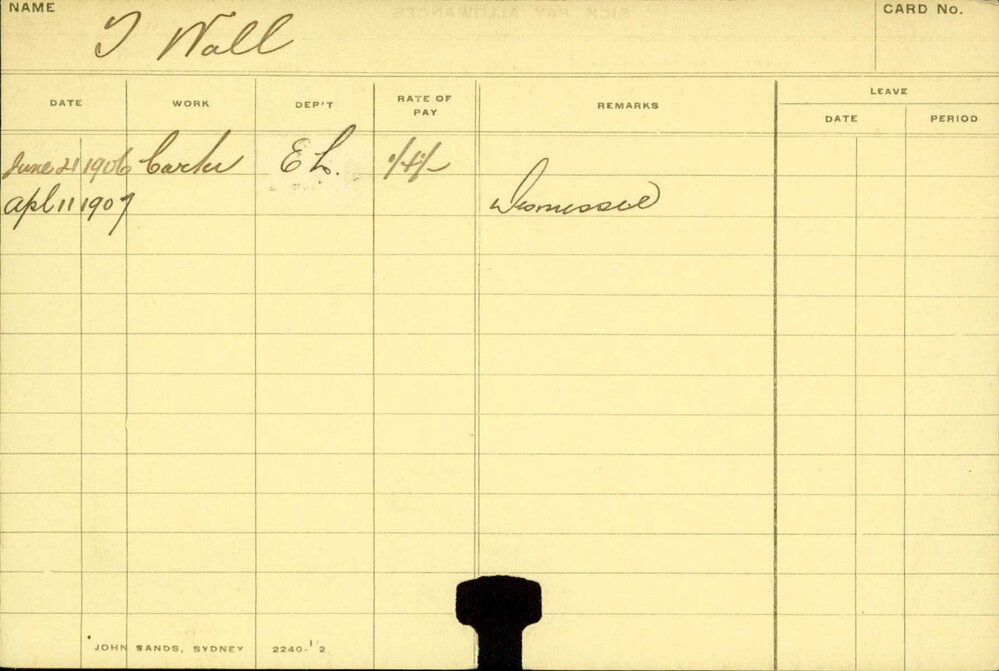 NAME
T Wall
CARD No.
DATE WORK DEP'T RATE OF PAY REMARKS LEAVE
DATE PERIOD
June 21 1906 Carter EL.
Apl 11 1907 Dismissed
JOHN SANDS, SYDNEY 2240-12